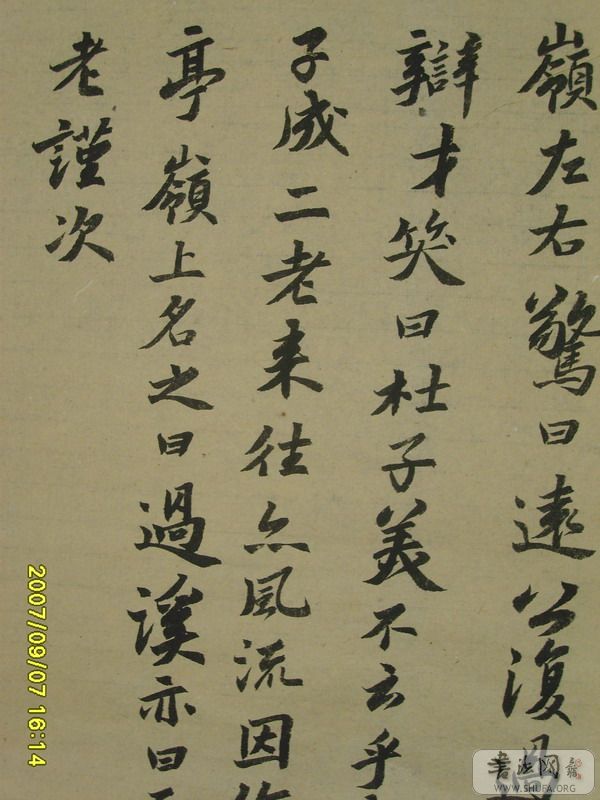 嶺左右驚曰遠公復
辯才笑曰杜子美不云乎
子成二老来往亦風流因
亭嶺上名之曰過溪亦曰
老謹次
2007/09/07 16:14
書法网
WWW.SHUFA.ORG